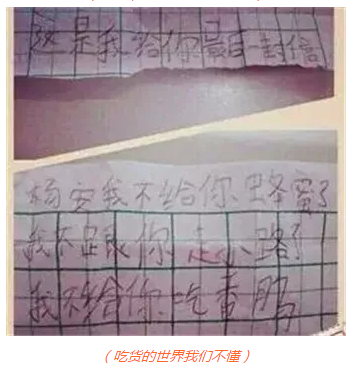 这是我给你最后一封信
杨安我不给你蜂蜜了
我不跟你走小路了
我不给你吃香肠
（吃货的世界我们不懂）